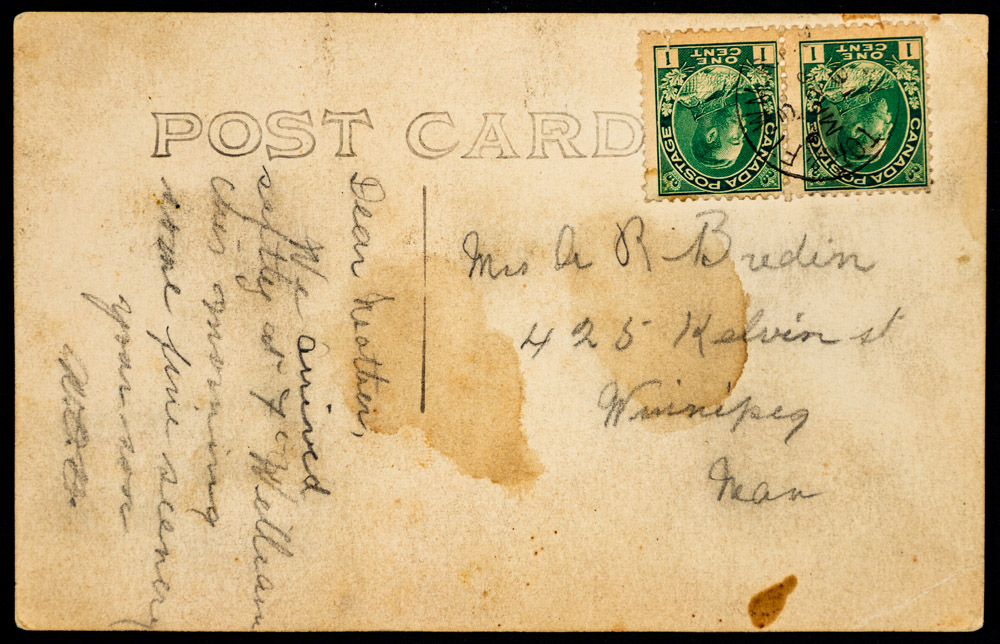 POST CARD
1 ONE CENT 1
CANADA POSTAGE
1 ONE CENT 1
CANADA POSTAGE
Dear Mother,
We arrived
saftly at Ft William
this morning
some fine scenery
your son
Mrs A R Bredin
425 Kelvin st
Winnipeg
Man